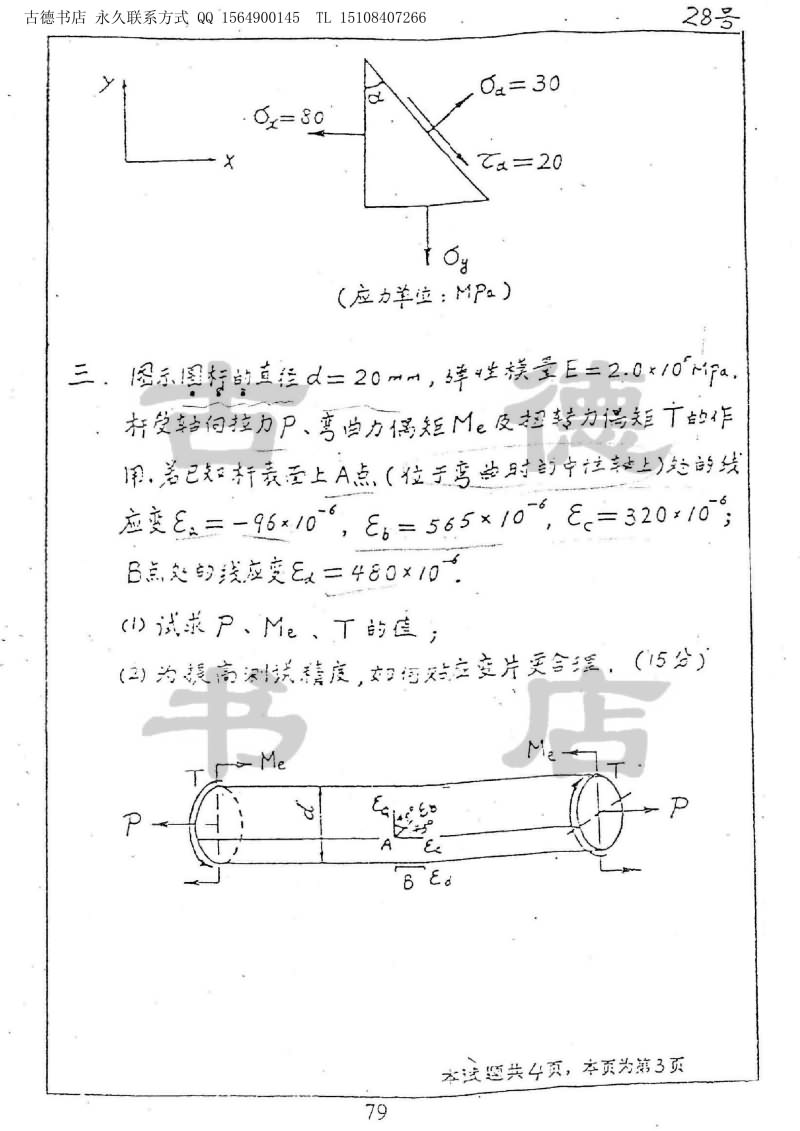 古德书店 永久联系方式 QQ 1564900145 TL 15108407266
28号
y
α
σα=30
σx=80
x
τα=20
σy
(应力单位:MPa)
三. 图示圆杆的直径d=20mm,弹性模量E=2.0×10⁵MPa.
杆受轴向拉力P、弯曲力偶矩Me及扭转力偶矩T的作
用.若已知杆表面上A点(位于弯曲时的中性轴上)处的线
应变εa=-96×10⁻⁶, εb=565×10⁻⁶, εc=320×10⁻⁶;
B点处的线应变εd=480×10⁻⁶.
(1)试求P、Me、T的值;
(2)为提高测试精度,如何贴应变片更合理.(15分)
古德
书店
T
Me
Me
T
P
d
εa
εb
45°
A
εc
P
B εd
本试题共4页,本页为第3页
79